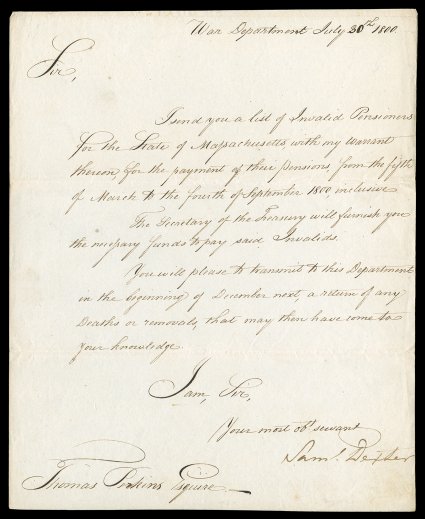 War Department July 30th 1800.
Sir,
I send you a list of Invalid Pensioners
for the State of Massachusetts with my Warrant
thereon for the payment of their pensions, from the fifth
of March to the fourth of September 1800, inclusive
The Secretary of the Treasury will furnish you
the necessary funds to pay said Invalids.
You will please to transmit to this Department
in the beginning of December next, a return of any
Deaths or removals, that may then have come to
your knowledge.
I am, Sir,
Your most obt servant
Saml. Dexter
Thomas Perkins Esquire